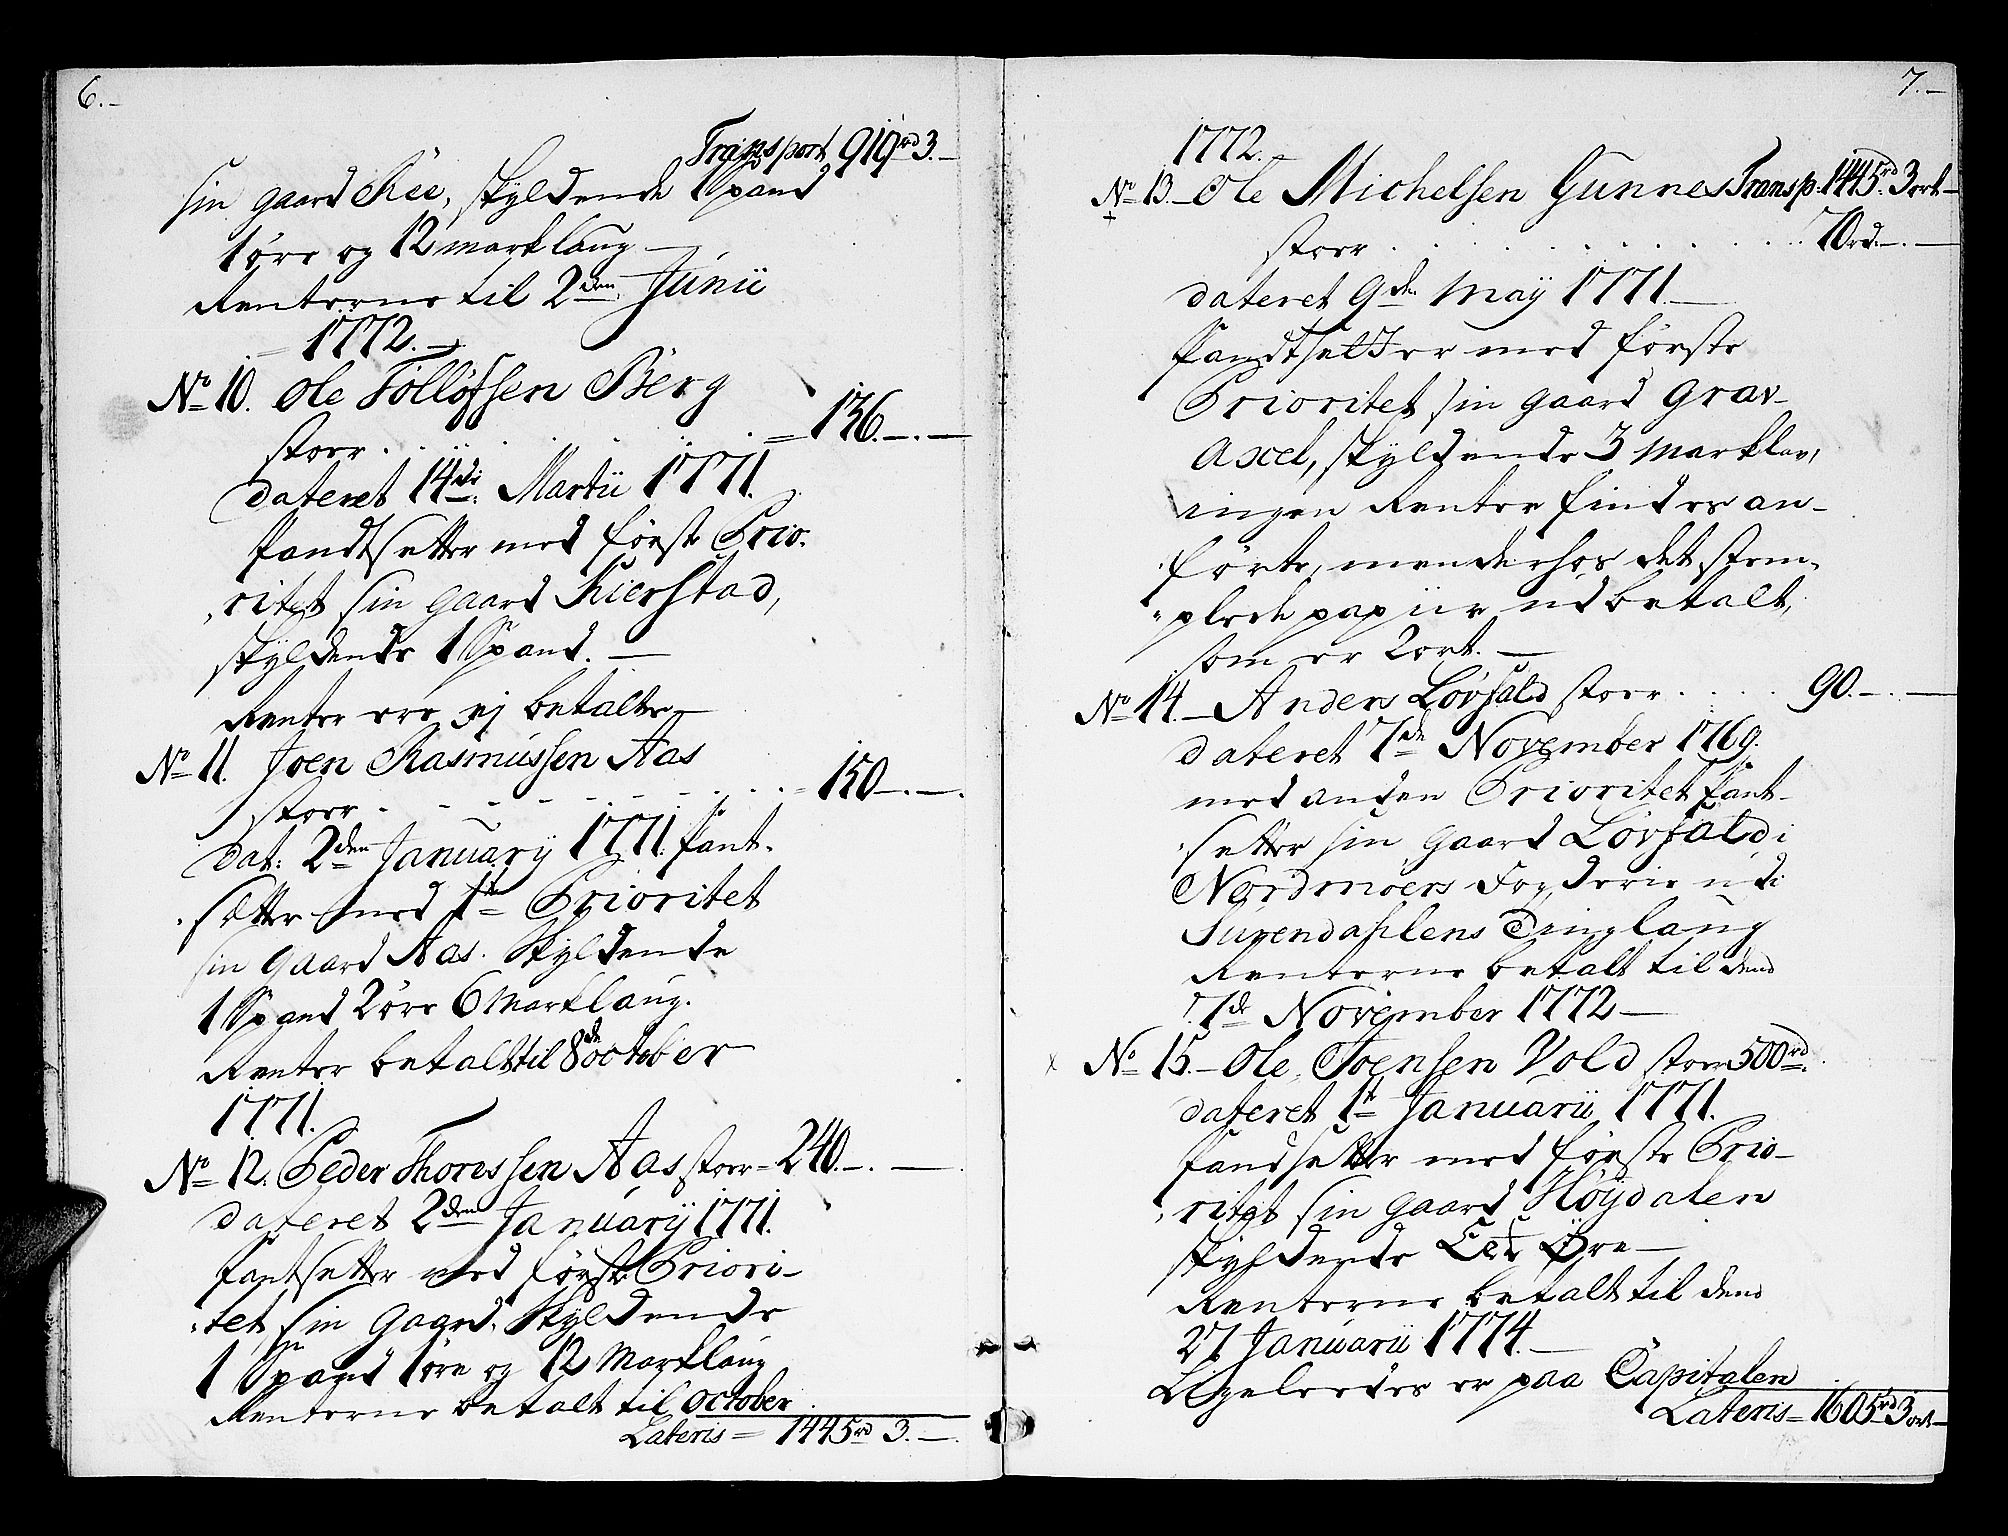 6.-
Transport 919rd 3.-
sin gaard Ree, skyldende 1 Spand
1 öre og 12 marklaug -
Renterne til 2den Junii
1772.-
No 10. Ole Tolløfsen Berg
stoer . . . . . . = 136.-.-
dateret 14de Martii 1771.
Pandtsetter med første Prio-
ritet sin gaard Kierstad,
skyldende 1 Spand. -
Renter ere ej betalte -
No 11. Joen Rasmussen Aas
stoer . - - - - - - . . = 150-.-.
dat: 2den January 1771. Pant-
sætter med 1te Prioritet
sin gaard Aas. Skyldende
1 Spand 2 öre 6 Marklaug.
Renter betalt til 8de october
1771.
No 12. Peder Thoressen Aas stoer = 240.-.-
dateret 2den January 1771.
Pantsetter med første Priori-
tet sin Gaard, Skyldende
1 Spand 1 öre og 12 Marklaug
Renterne betalt til october
Lateris = 1445rd 3.-.
7.-
1772.-
No 13.- Ole Michelsen Gunnes Transp. 1445rd 3 ort-
stoer . . . . . . . . . . 70rd.-.-
dateret 9de May 1771.-
Pandtsetter med første
Prioritet sin gaard Grav-
Axel, skyldende 3 Marklau,
ingen Renter findes an-
førte, men derhos det stem-
plede papiir udbetalt,
som er 2 ort. -
No 14.- Anders Lövfald stoer . . . . 90.-.-
dateret 7de November 1769.
med anden Prioritet Pant-
setter sin gaard Lovfald i
Nordmoers Fogderie udi
Surendahlens Tinglaug
Renterne betalt til dend
7de November 1772-
No 15.- Ole Joensen Vold stoer 500rd.
dateret 1te Januarii 1771.
Pandsetter med første Prio-
ritet sin gaard Høydalen
skyldende Öre -
Renterne betalt til dend
27 Januarii 1774.-
Ligeleedes er paa Capitalen
Lateris = 1605rd 3 ort-